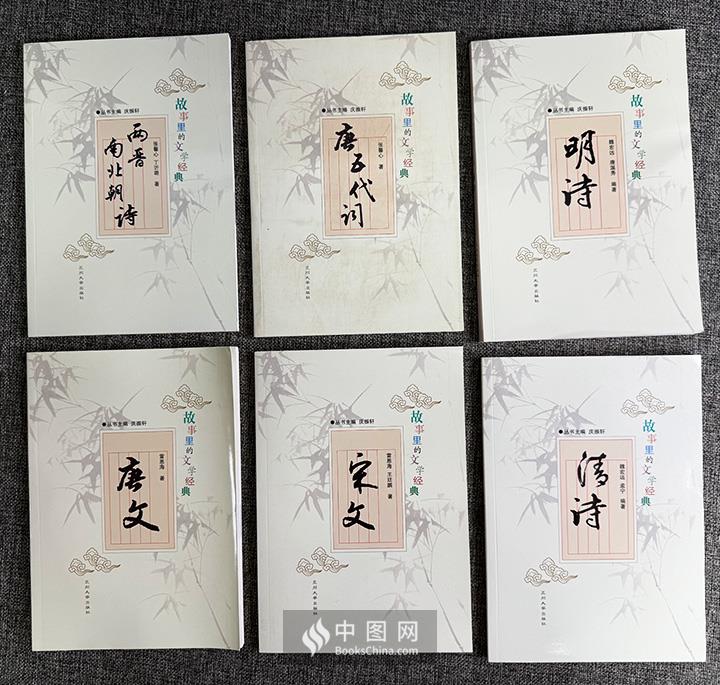 故事里的文学经典
●丛书主编 庆振轩
两晋
南北朝诗
张馨心 丁沂璐 著
兰州大学出版社
故事里的文学经典
●丛书主编 庆振轩
唐五代词
张馨心 著
兰州大学出版社
故事里的文学经典
●丛书主编 庆振轩
明诗
魏宏远 编著
兰州大学出版社
故事里的文学经典
●丛书主编 庆振轩
唐文
雷恩海 著
兰州大学出版社
故事里的文学经典
●丛书主编 庆振轩
宋文
雷恩海 著
兰州大学出版社
故事里的文学经典
●丛书主编 庆振轩
清诗
魏宏远 孟宁 编著
兰州大学出版社
中图网
BooksChina.com